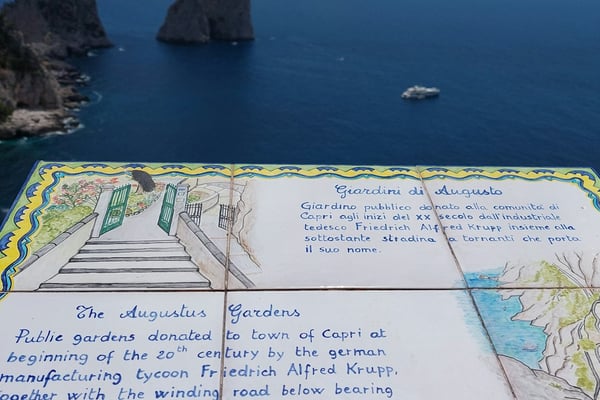 Giardini di Augusto
Giardino pubblico donato alla comunità di
Capri agli inizi del XX secolo dall'industriale
tedesco Friedrich Alfred Krupp insieme alla
sottostante stradina a tornanti che porta
il suo nome.
The Augustus Gardens
Public gardens donated to town of Capri at
beginning of the 20th century by the german
manufacturing tycoon Friedrich Alfred Krupp,
together with the winding road below bearing